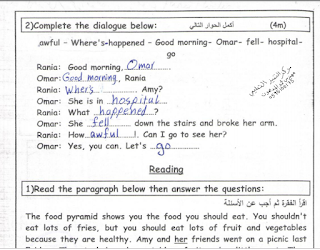 2)Complete the dialogue below: أكمل الحوار التالي (4m)
awful - Where's-happened - Good morning- Omar- fell- hospital-
go
Rania: Good morning, Omar
Omar: Good morning, Rania
Rania: Wher's Amy?
Omar: She is in hospital
Rania: What happened?
Omar: She fell down the stairs and broke her arm.
Rania: How awful! Can I go to see her?
Omar: Yes, you can. Let's go
Reading
1)Read the paragraph below then answer the questions:
اقرأ الفقرة ثم أجب عن الأسئلة
The food pyramid shows you the food you should eat. You shouldn't
eat lots of fries, but you should eat lots of fruit and vegetables
because they are healthy. Amy and her friends went on a picnic last